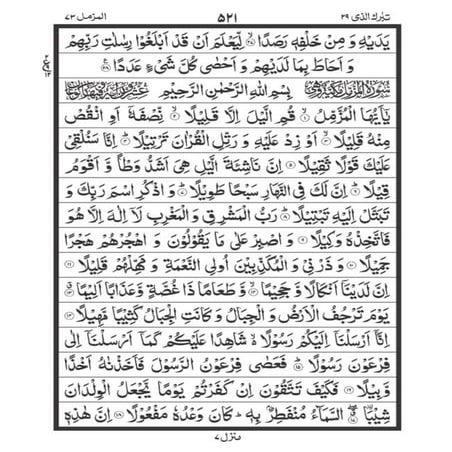 تبٰرك الذى ٢٩ ٥٢١ المزمل ٧٣
يَدَيْهِ وَ مِنْ خَلْفِهٖ رَصَدًا ۙ لِّيَعْلَمَ اَنْ قَدْ اَبْلَغُوْا رِسٰلٰتِ رَبِّهِمْ
وَ اَحَاطَ بِمَا لَدَيْهِمْ وَ اَحْصٰى كُلَّ شَىْءٍ عَدَدًا
بِسْمِ اللّٰهِ الرَّحْمٰنِ الرَّحِيْمِ
يٰٓاَيُّهَا الْمُزَّمِّلُ ۙ قُمِ الَّيْلَ اِلَّا قَلِيْلًا ۙ نِّصْفَهٗٓ اَوِ انْقُصْ
مِنْهُ قَلِيْلًا ۙ اَوْ زِدْ عَلَيْهِ وَ رَتِّلِ الْقُرْاٰنَ تَرْتِيْلًا ؕ اِنَّا سَنُلْقِىْ
عَلَيْكَ قَوْلًا ثَقِيْلًا اِنَّ نَاشِئَةَ الَّيْلِ هِىَ اَشَدُّ وَطْاً وَّ اَقْوَمُ
قِيْلًا ؕ اِنَّ لَكَ فِى النَّهَارِ سَبْحًا طَوِيْلًا ؕ وَ اذْكُرِ اسْمَ رَبِّكَ وَ
تَبَتَّلْ اِلَيْهِ تَبْتِيْلًا ؕ رَبُّ الْمَشْرِقِ وَ الْمَغْرِبِ لَآ اِلٰهَ اِلَّا هُوَ
فَاتَّخِذْهُ وَكِيْلًا وَ اصْبِرْ عَلٰى مَا يَقُوْلُوْنَ وَ اهْجُرْهُمْ هَجْرًا
جَمِيْلًا وَ ذَرْنِىْ وَ الْمُكَذِّبِيْنَ اُولِى النَّعْمَةِ وَ مَهِّلْهُمْ قَلِيْلًا
اِنَّ لَدَيْنَآ اَنْكَالًا وَّ جَحِيْمًا ۙ وَّ طَعَامًا ذَا غُصَّةٍ وَّ عَذَابًا اَلِيْمًا
يَوْمَ تَرْجُفُ الْاَرْضُ وَ الْجِبَالُ وَ كَانَتِ الْجِبَالُ كَثِيْبًا مَّهِيْلًا
اِنَّآ اَرْسَلْنَآ اِلَيْكُمْ رَسُوْلًا ۙ شَاهِدًا عَلَيْكُمْ كَمَآ اَرْسَلْنَآ اِلٰى
فِرْعَوْنَ رَسُوْلًا ؕ فَعَصٰى فِرْعَوْنُ الرَّسُوْلَ فَاَخَذْنٰهُ اَخْذًا
وَّبِيْلًا فَكَيْفَ تَتَّقُوْنَ اِنْ كَفَرْتُمْ يَوْمًا يَّجْعَلُ الْوِلْدَانَ
شِيْبَا ۨ السَّمَآءُ مُنْفَطِرٌۢ بِهٖ ؕ كَانَ وَعْدُهٗ مَفْعُوْلًا اِنَّ هٰذِهٖ
منزل ٧